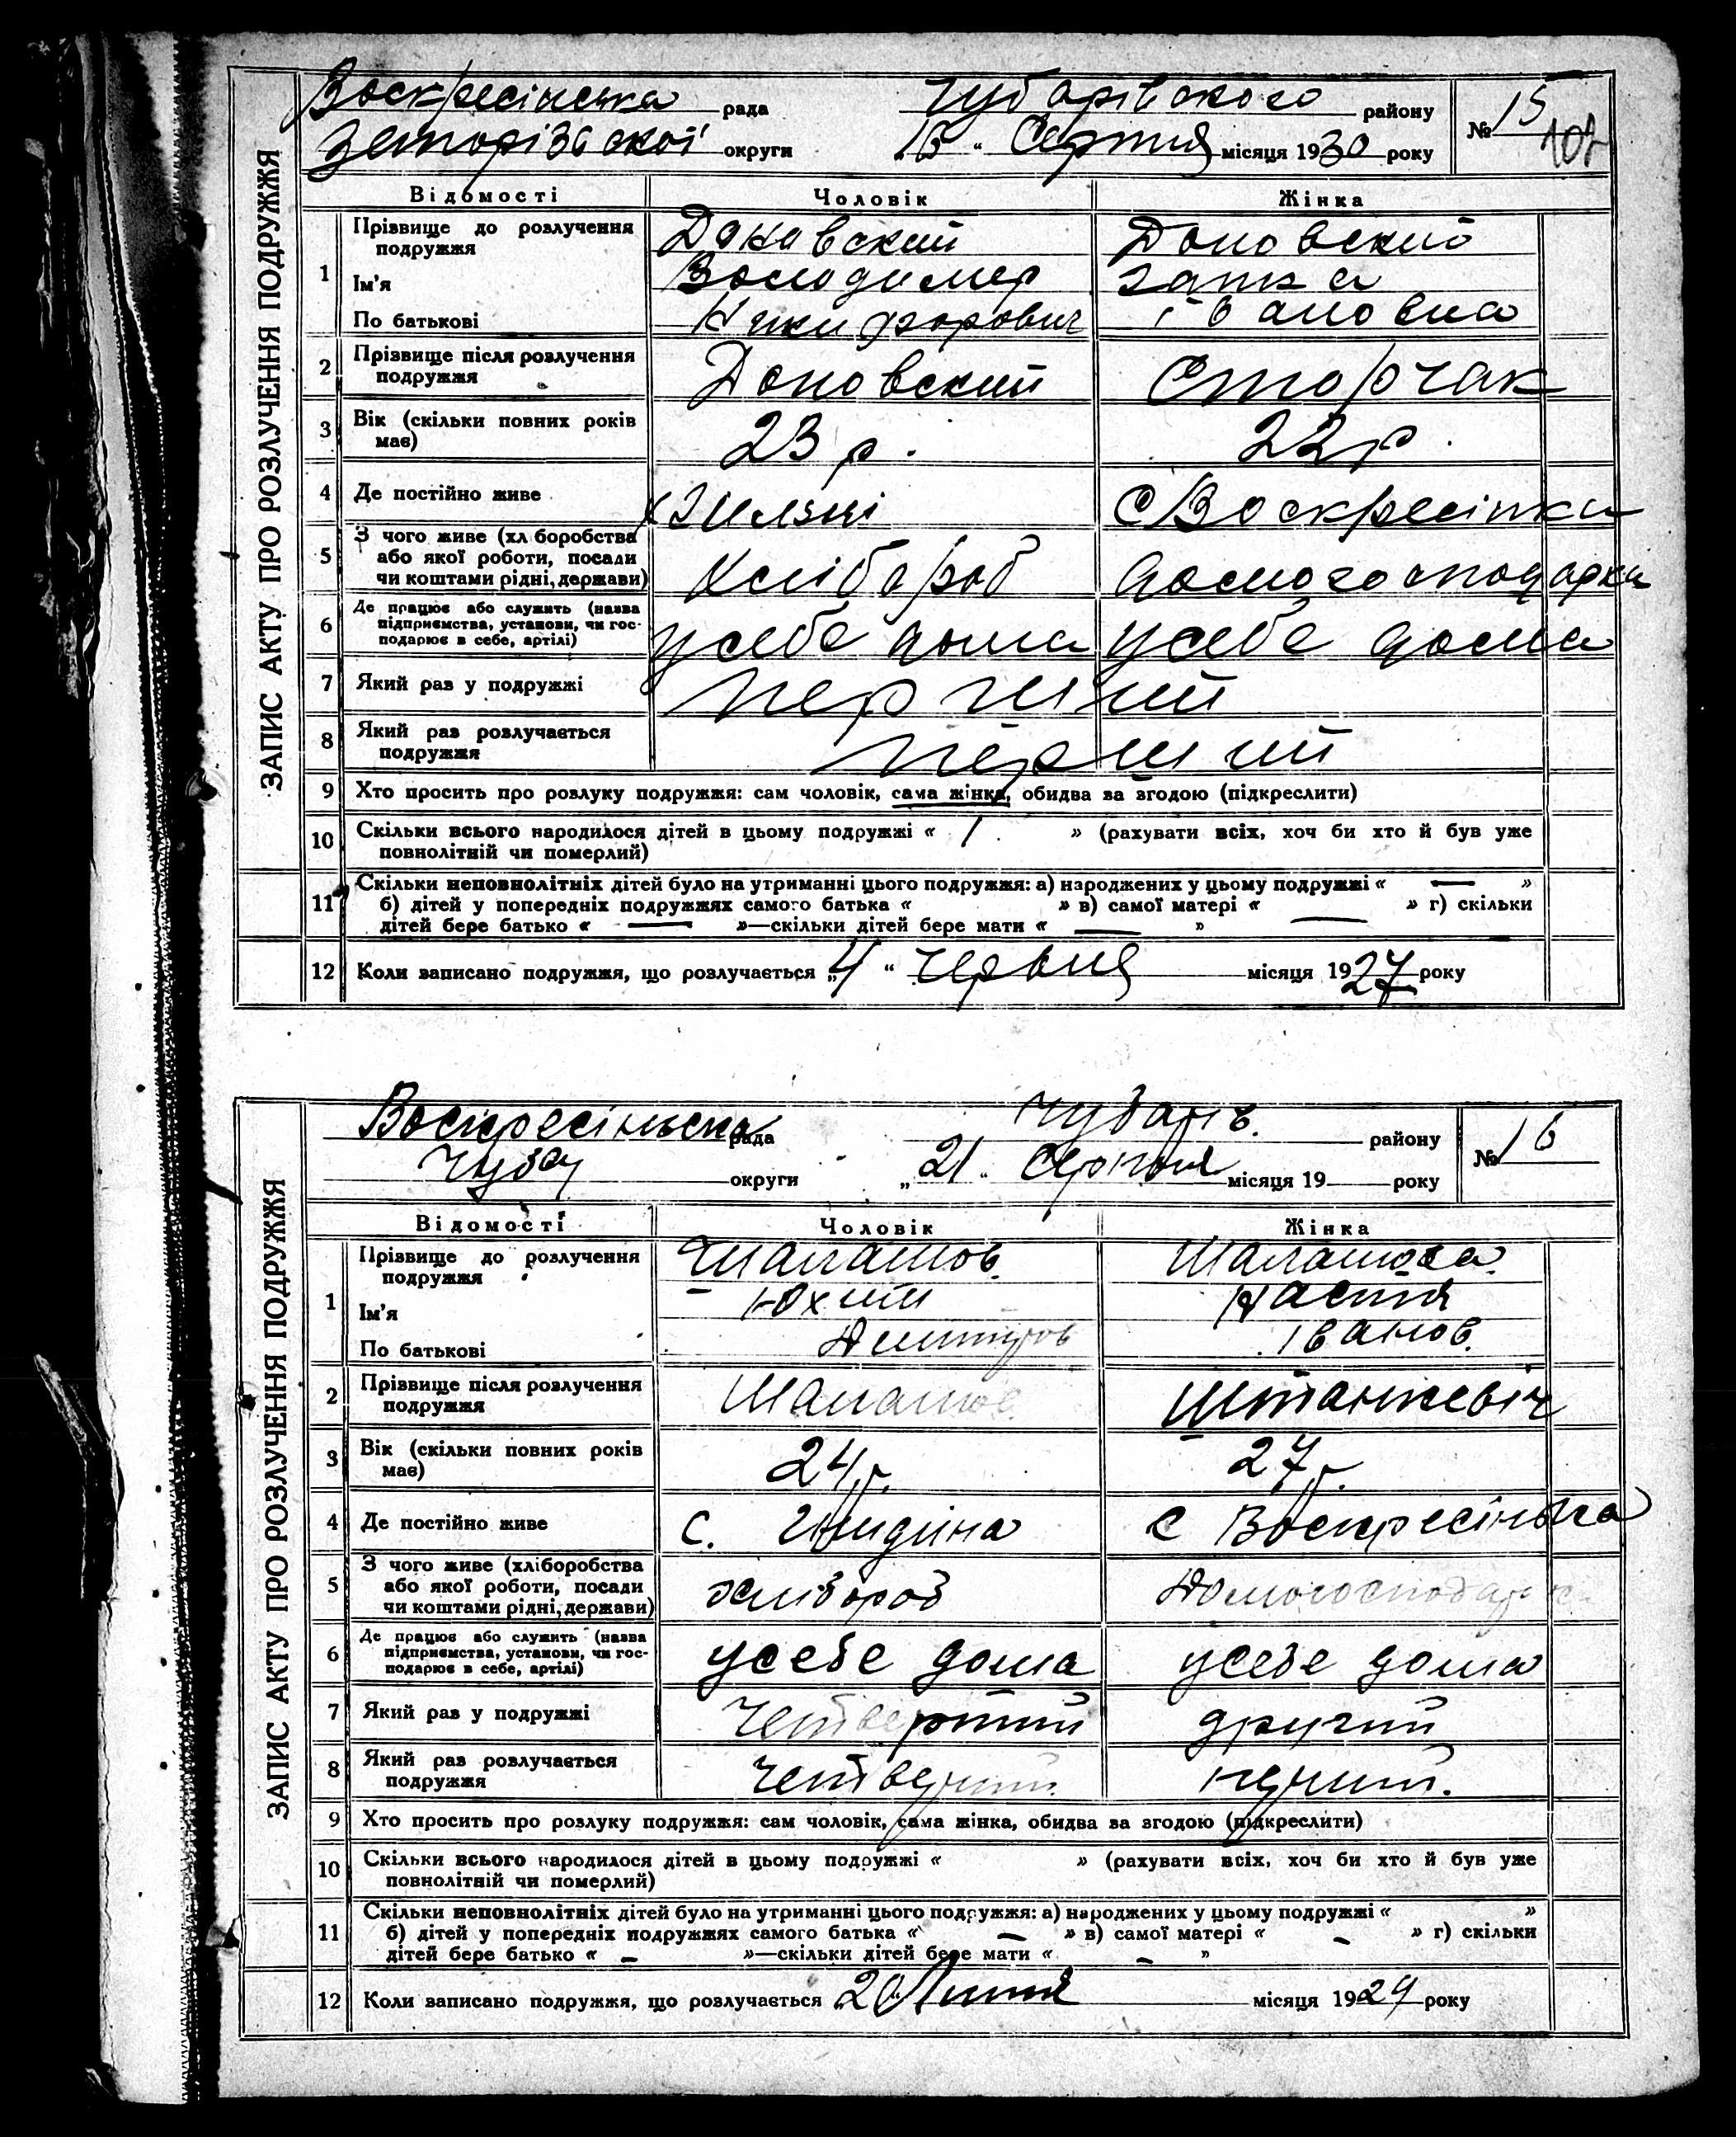 ЗАПИС АКТУ ПРО РОЗЛУЧЕННЯ ПОДРУЖЖЯ
Воскресінська рада Чубарівського району № 15
Запорізської округи 15 „ Серпня місяця 1930 року 107
Відомості Чоловік Жінка
1 Прізвище до розлучення подружжя Доновский Доновский
Ім'я Володимер Ганка
По батькові Никифорович Івановна
2 Прізвище після розлучення подружжя Доновский Сторчак
3 Вік (скільки повних років має) 23 р. 22 р.
4 Де постійно живе С Воскресінка
5 З чого живе (хліборобства або якої роботи, посади чи коштами рідні, держави) Хлібороб домогосподарка
6 Де працює або служить (назва підприємства, установи, чи господарює в себе, артілі) усебе дома усебе дома
7 Який раз у подружжі перший
8 Який раз розлучається подружжя перший
9 Хто просить про розлуку подружжя: сам чоловік, сама жінка, обидва за згодою (підкреслити)
10 Скільки всього народилося дітей в цьому подружжі « 1 » (рахувати всіх, хоч би хто й був уже
повнолітній чи померлий)
11 Скільки неповнолітніх дітей було на утриманні цього подружжя: а) народжених у цьому подружжі « — »
б) дітей у попередніх подружжях самого батька « » в) самої матері « — » г) скільки
дітей бере батько « — »—скільки дітей бере мати « — »
12 Коли записано подружжя, що розлучається „4 “ Червня місяця 1927 року
ЗАПИС АКТУ ПРО РОЗЛУЧЕННЯ ПОДРУЖЖЯ
Воскресіньська рада Чубарів. району № 16
Чубар округи „ 21 „ Серпня місяця 19 року
Відомості Чоловік Жінка
1 Прізвище до розлучення подружжя Шалашов. Шалашова.
Ім'я Юхим Настя
По батькові Дмитров Іванов.
2 Прізвище після розлучення подружжя Шалашов Штанкевіч
3 Вік (скільки повних років має) 24 р. 27 р.
4 Де постійно живе с. с Воскресінька
5 З чого живе (хліборобства або якої роботи, посади чи коштами рідні, держави) хлібороб Домогосподарка
6 Де працює або служить (назва підприємства, установи, чи господарює в себе, артілі) усебе дома усебе дома
7 Який раз у подружжі четвертий другий
8 Який раз розлучається подружжя четвертий. перший.
9 Хто просить про розлуку подружжя: сам чоловік, сама жінка, обидва за згодою (підкреслити)
10 Скільки всього народилося дітей в цьому подружжі « » (рахувати всіх, хоч би хто й був уже
повнолітній чи померлий)
11 Скільки неповнолітніх дітей було на утриманні цього подружжя: а) народжених у цьому подружжі « »
б) дітей у попередніх подружжях самого батька « — » в) самої матері « — » г) скільки
дітей бере батько « — »—скільки дітей бере мати « — »
12 Коли записано подружжя, що розлучається 20 Липня місяця 1929 року